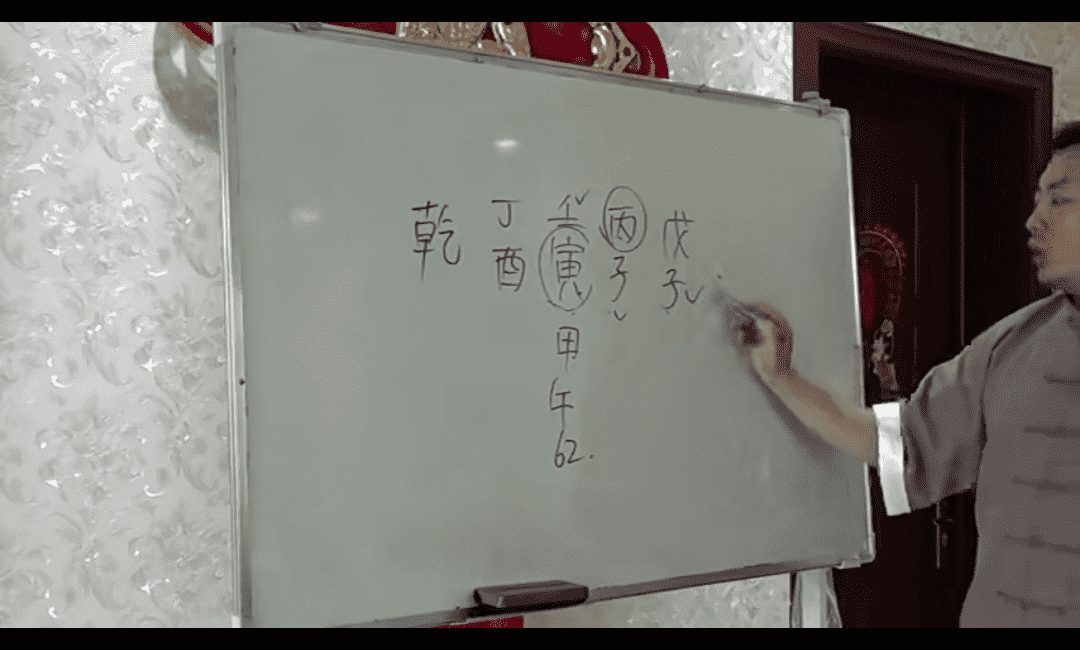 乾 丁 壬 丙 戊
酉 寅 子 子
甲
午
62.